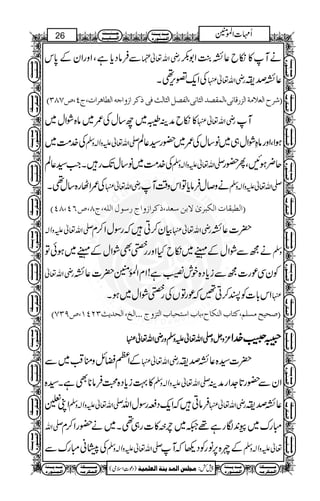 26
اُمہاتُ المؤمنین
نے آپ کا نکاح عائشہ بنت ابوبکر رضی اللہ تعالیٰ عنہا سے فرمادیا ہے، اور ان کے پاس
عائشہ صدیقہ رضی اللہ تعالیٰ عنہا کی ایک تصویر تھی۔
(شرح العلامۃ الزرقانی،المقصد الثانی،الفصل الثالث فی ذکر ازواجہ الطاھرات،ج٤،ص٣٨٧)
آپ رضی اللہ تعالیٰ عنہا کا نکاح مدینہ طیبہ میں چھ سال کی عمر میں ماہ شوال میں
ہوا، اور ماہ شوال ہی میں نو سال کی عمر میں حضور سید عالم صلی اللہ تعالیٰ علیہ والہ وسلم کی خدمت میں
حاضر ہوئیں، پھر حضور صلی اللہ تعالیٰ علیہ والہ وسلم کی خدمت میں نو سال تک رہیں۔ جب سید عالم
صلی اللہ تعالیٰ علیہ والہ وسلم نے وصال فرمایا تو اس وقت آپ رضی اللہ تعالیٰ عنہا کی عمر اٹھارہ سال تھی۔
(الطبقات الکبریٰ لابن سعد،ذکر ازواج رسول اللہ،ج٨،ص٤٦،٤٨)
حضرت عائشہ رضی اللہ تعالیٰ عنہا بیان کرتی ہیں کہ رسول اکرم صلی اللہ تعالیٰ علیہ والہ
وسلم نے مجھ سے شوال کے مہینے میں نکاح کیا اور رخصتی بھی شوال کے مہینے میں ہوئی تو
کون سی عورت مجھ سے زیادہ خوش نصیب ہے! ام المؤمنین حضرت عائشہ رضی اللہ تعالیٰ
عنہا اس بات کو پسند کرتی تھیں کہ عورتوں کی رخصتی شوال میں ہو۔
(صحیح مسلم،کتاب النکاح،باب استحباب التزوج...الخ،الحدیث١٤٢٣،ص٧٣٩)
حبیبۂ حبیب خدا عزوجل وصلی اللہ تعالیٰ علیہ والہ وسلم ورضی اللہ تعالیٰ عنہا
حضرت سیدہ عائشہ صدیقہ رضی اللہ تعالیٰ عنہا کے اعظم فضائل ومناقب میں سے
ان سے حضور تاجدار مدینہ صلی اللہ تعالیٰ علیہ والہ وسلم کا بہت زیادہ محبت فرمانا بھی ہے۔ سیدہ
عائشہ صدیقہ رضی اللہ تعالیٰ عنہا فرماتی ہیں کہ ایک دفعہ رسول اللہ صلی اللہ تعالیٰ علیہ والہ وسلم اپنی نعلین
مبارک میں پیوند لگا رہے تھے جبکہ میں چرخہ کات رہی تھی۔ میں نے حضور اکرم صلی اللہ
تعالیٰ علیہ والہ وسلم کے چہرہ پر نور کو دیکھا کہ آپ صلی اللہ تعالیٰ علیہ والہ وسلم کی پیشانی مبارک سے
پیش کش: مجلس المدینۃ العلمیۃ (دعوت اسلامی)